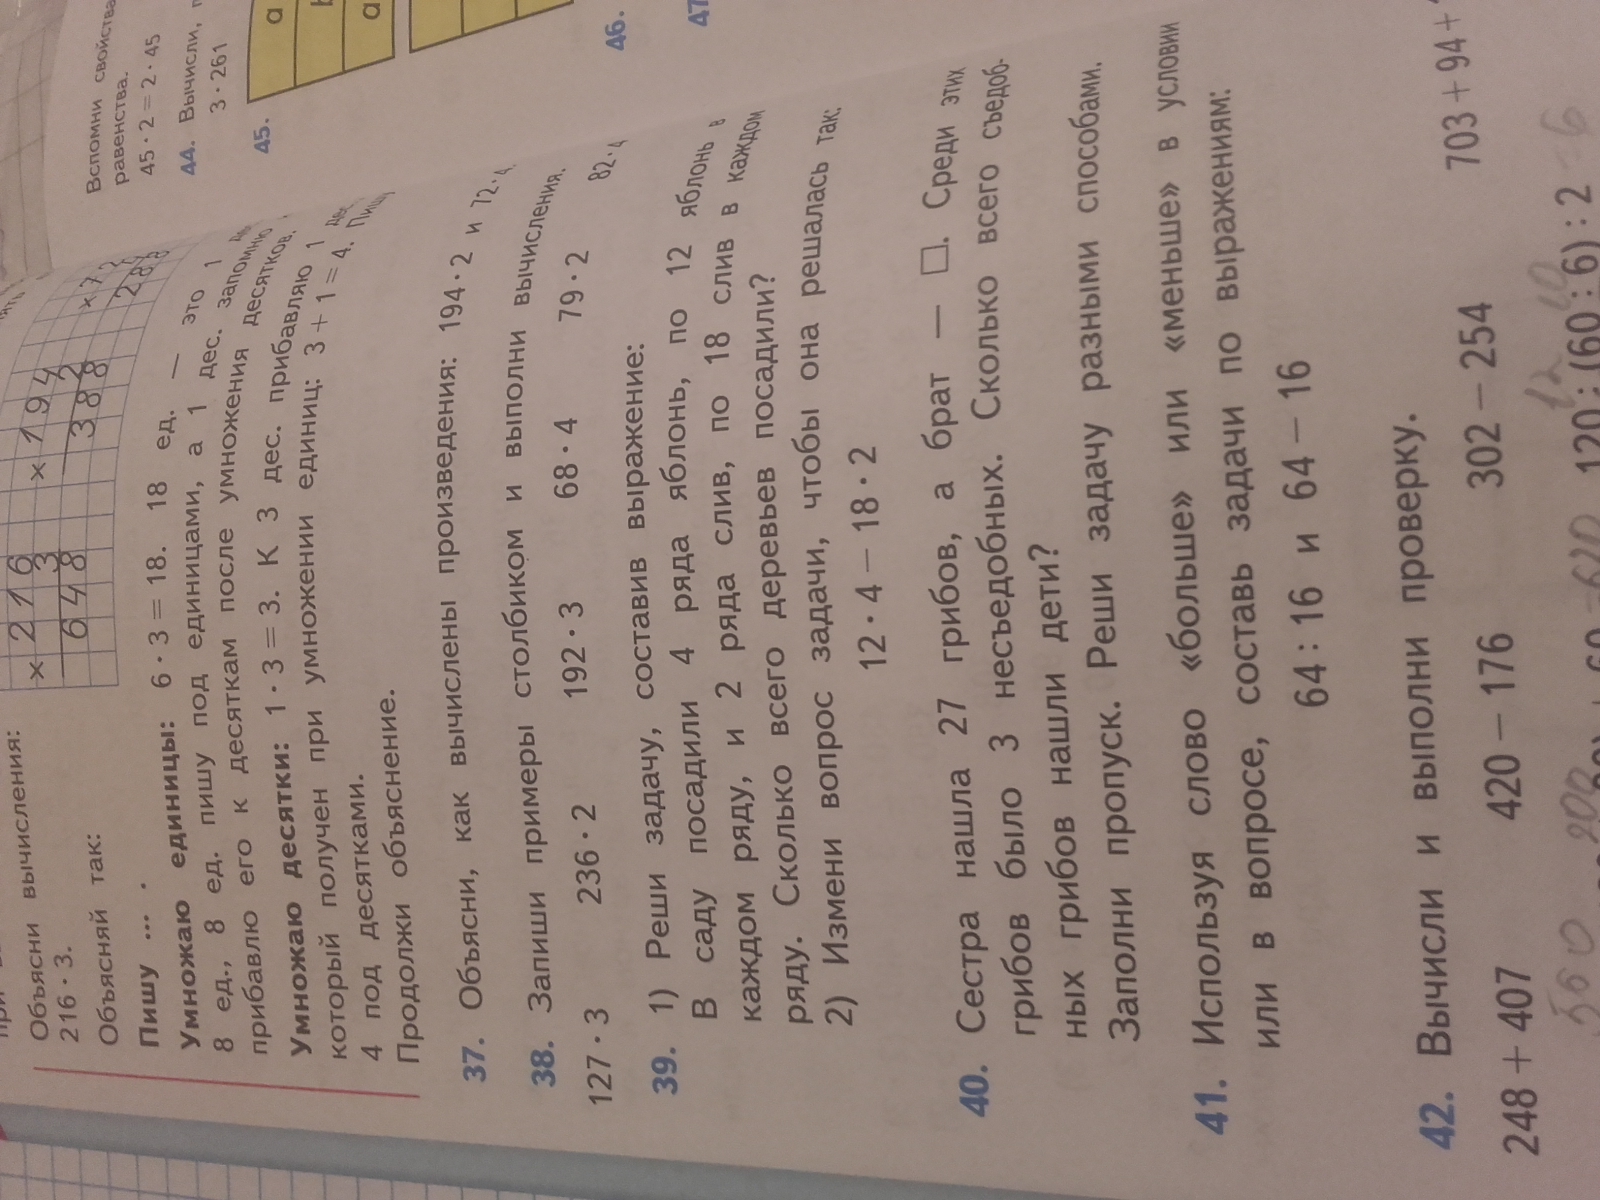 Объясни вычисления:
216 · 3.
Объясняй так:
Пишу ... .
Умножаю единицы: 6 · 3 = 18. 18 ед. — это 1
8 ед., 8 ед. пишу под единицами, а 1 дес. запомню
прибавлю его к десяткам после умножения десятков.
Умножаю десятки: 1 · 3 = 3. К 3 дес. прибавляю 1 дес.
который получен при умножении единиц: 3 + 1 = 4. Пишу
4 под десятками.
Продолжи объяснение.
× 216
3
648
× 194
2
388
37. Объясни, как вычислены произведения: 194 · 2 и 72 · 4.
38. Запиши примеры столбиком и выполни вычисления.
127 · 3 236 · 2 192 · 3 68 · 4 79 · 2 82 · 4
39. 1) Реши задачу, составив выражение:
В саду посадили 4 ряда яблонь, по 12 яблонь в
каждом ряду, и 2 ряда слив, по 18 слив в каждом
ряду. Сколько всего деревьев посадили?
2) Измени вопрос задачи, чтобы она решалась так:
12 · 4 − 18 · 2
40. Сестра нашла 27 грибов, а брат — □. Среди этих
грибов было 3 несъедобных. Сколько всего съедоб-
ных грибов нашли дети?
Заполни пропуск. Реши задачу разными способами.
41. Используя слово «больше» или «меньше» в условии
или в вопросе, составь задачи по выражениям:
64 : 16 и 64 − 16
42. Вычисли и выполни проверку.
248 + 407 420 − 176 302 − 254 703 + 94 +
120 : (60 : 6) : 2
Вспомни свойства
равенства.
45 · 2 = 2 · 45
44. Вычисли,
3 · 261
45.
a
a
46.
47